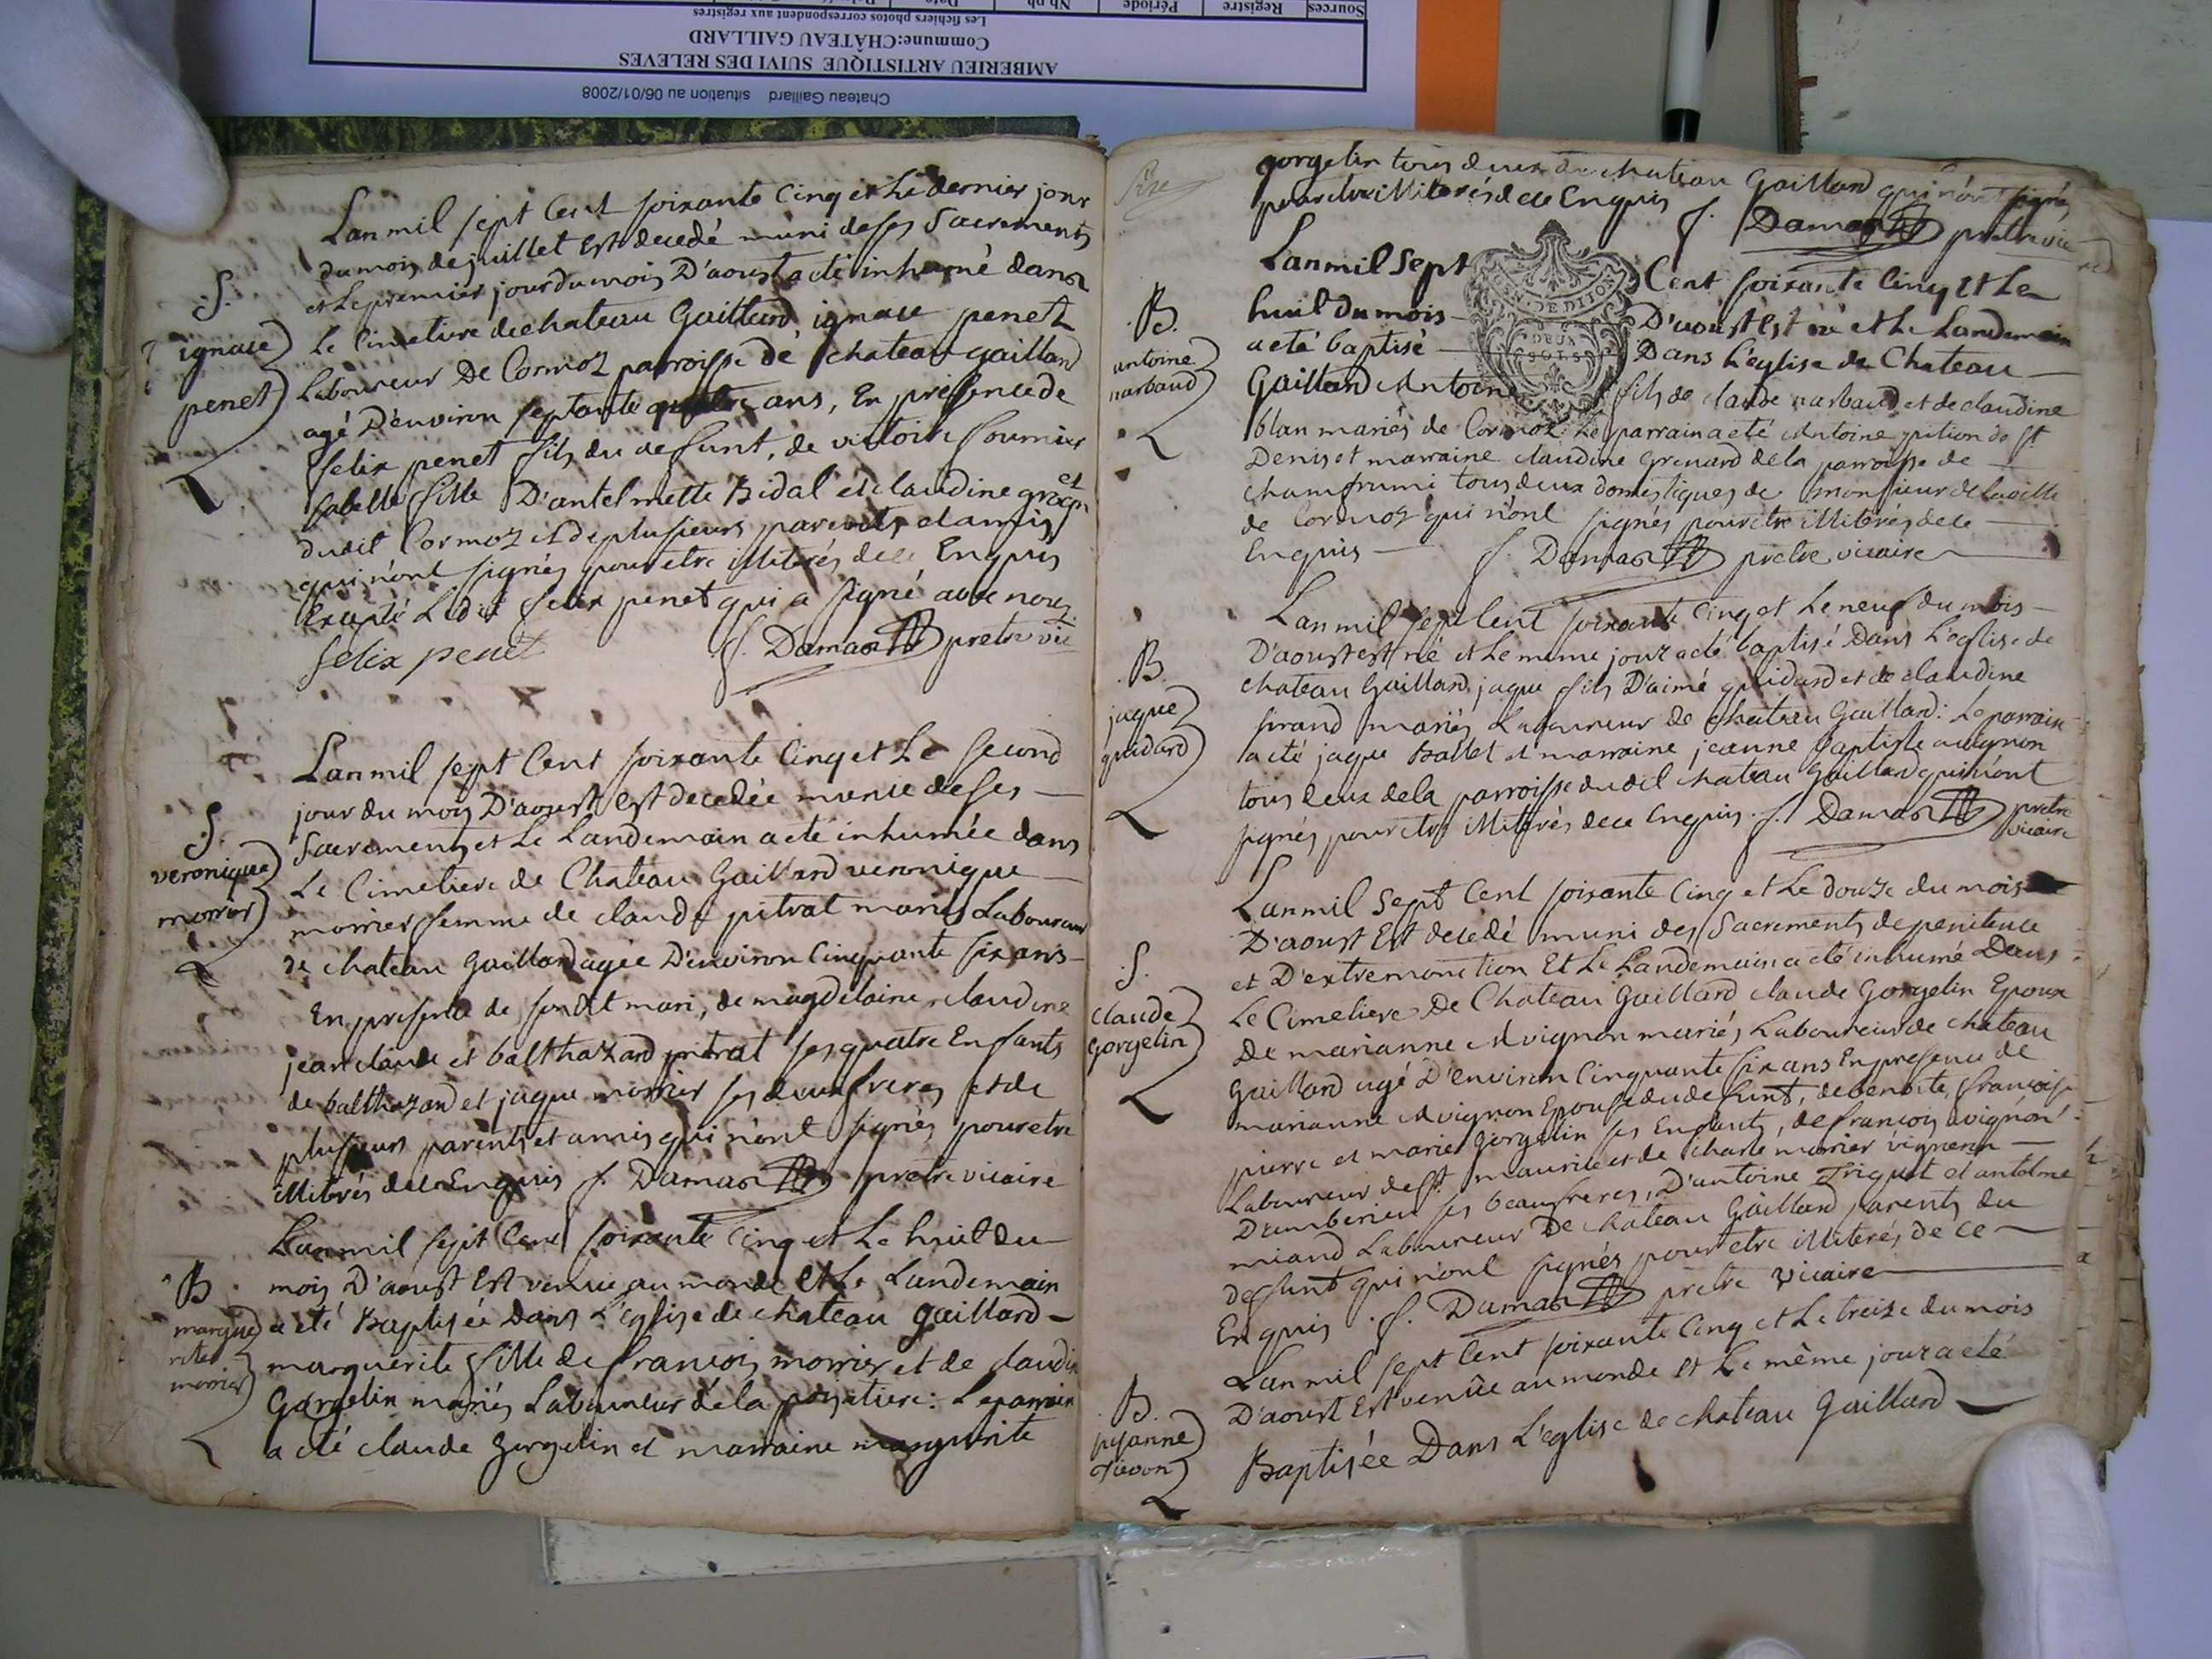 Sources Registre Période Nb ph Date
Les fichiers photos correspondent aux registres
Commune:CHÂTEAU GAILLARD
AMBERIEU ARTISTIQUE SUIVI DES RELEVES
Chateau Gaillard situation au 06/01/2008
Lan mil sept Cent soixante Cinq et Le dernier jour
du mois de juillet Est decedé muni de ses Sacrements
et Le premier jour du mois D'aoust a eté inhumé dans
Le Cimetiere de chateau Gaillard ignace penet
Laboureur De Cormoz parroisse de chateau gaillard
agé D'environ septante quatre ans, En presence de
felix penet fils du defunt, de victoire fournier
sa belle fille D'antelmette Bidal et claudine
dudit Cormoz et de plusieurs parents et amis
qui n'ont signés pour etre illiterés de ce Enquis
Excepté Ledit felix penet qui a signé avec nous
felix penet f. Damas pretre vic
S.
ignace
penet
Lan mil sept Cent soixante Cinq et Le second
jour du mois D'aoust Est decedée munie de ses
Sacrements et Le Landemain a eté inhumée dans
Le Cimetiere de Chateau Gaillard veronique
morrier femme de claude pitrat mariés Laboureur
de chateau Gaillard agée D'environ Cinquante six ans
En presence de sondit mari, de magdelaine, claudine
jean claude et balthazard pitrat ses quatre Enfants
de balthazard et jaque morrier ses deux freres et de
plusieurs parents et amis qui n'ont signés pour etre
illiterés de ce Enquis f. Damas pretre vicaire
S.
veronique
morrier
Lan mil sept Cent soixante Cinq et Le huit Du
mois D'aoust Est venue au monde et Le Landemain
a eté Baptisée Dans L'église de chateau gaillard
marguerite fille de francois morrier et de claudine
Gorgelin mariés Laboureur de la : Le parrain
a eté claude Gorgelin et marraine marguerite
B
margue
rite
morrier
gorgelin tous deux de chateau Gaillard qui n'ont signés
pour etre illiterés de ce Enquis f. Damas pretre vic
GEN. DE DIJON
DEUX
SOLS
Lan mil Sept Cent soixante Cinq et Le
huit du mois D'aoust Est né et Le Landemain
a eté baptisé Dans L'eglise de Chateau
Gaillard Antoine fils de claude narbaud et de claudine
blan mariés de Cormoz: Le parrain a eté Antoine pition de St
Denis et marraine claudine Grenard de la parroisse de
chamfrumi tous deux domestiques de monsieur
de Cormoz qui n'ont signés pour etre illiterés de ce
Enquis f. Damas pretre vicaire
B.
antoine
narbaud
Lan mil sept Cent soixante Cinq et Le neuf du mois
D'aoust est né et Le meme jour a eté baptisé Dans L'eglise de
chateau Gaillard jaque fils D'aimé guidard et de claudine
mariés Laboureur de chateau Gaillard: Le parrain
a eté jaque Ballet et marraine jeanne baptiste avignon
tous deux de la parroisse dudit chateau Gaillard qui n'ont
signés pour etre illiterés de ce Enquis f. Damas pretre
vicaire
B.
jaque
guidard
Lan mil Sept Cent soixante Cinq et Le douze du mois
D'aoust Est decedé muni des Sacrements de penitence
et D'extremonction Et Le Landemain a eté inhumé Dans
Le Cimetiere De Chateau Gaillard claude Gorgelin Epoux
De marianne Avignon mariés Laboureur de chateau
Gaillard agé D'environ Cinquante six ans En presence de
marianne Avignon Epouse du defunt, de benoite, francoise
pierre et marie Gorgelin ses Enfants, de francois avignon
Laboureur de St maurice et de charle morrier vigneron
D'amberieu ses beaufreres, D'antoine Triquet et antelme
miand Laboureur De chateau Gaillard parents du
defunt qui n'ont signés pour etre illiterés de ce
Enquis f. Damas pretre vicaire
S.
claude
Gorgelin
Lan mil sept Cent soixante Cinq et Le treize du mois
D'aoust Est venûe au monde et Le même jour a eté
Baptisée Dans L'eglise de chateau Gaillard
B.